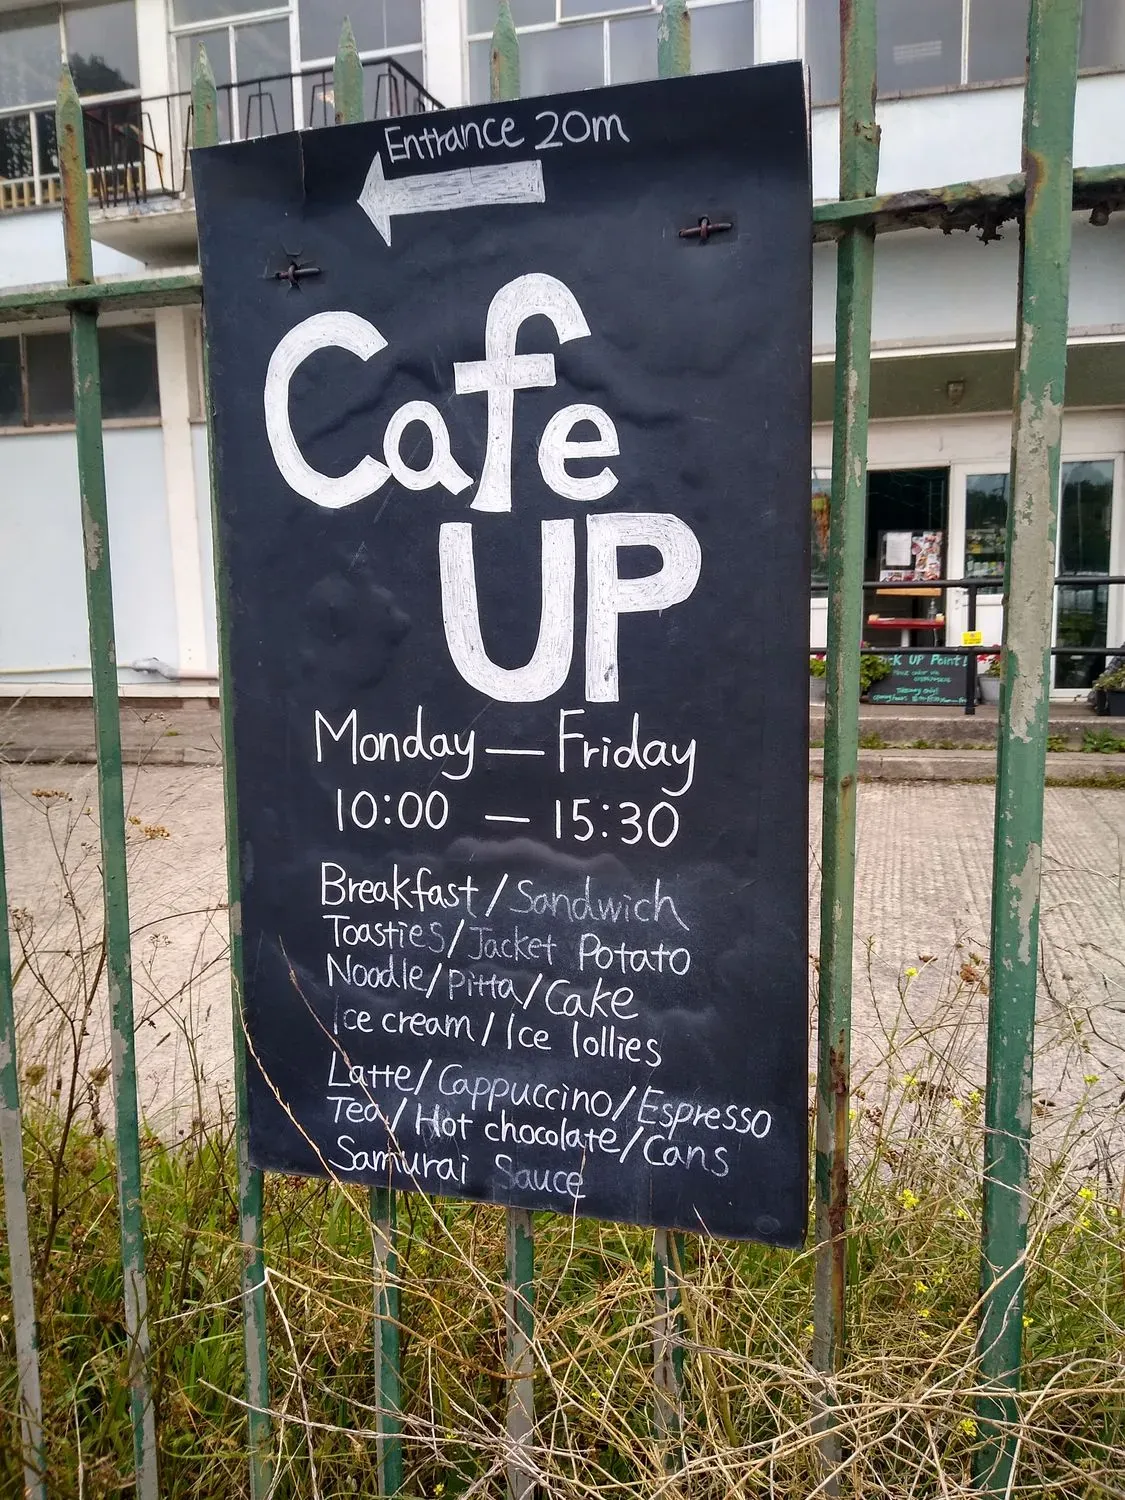 Entrance 20m
Cafe
UP
Monday — Friday
10:00 — 15:30
Breakfast / Sandwich
Toasties / Jacket Potato
Noodle / Pitta / Cake
Ice cream / Ice lollies
Latte / Cappuccino / Espresso
Tea / Hot chocolate / Cans
Samurai Sauce
UP Point!